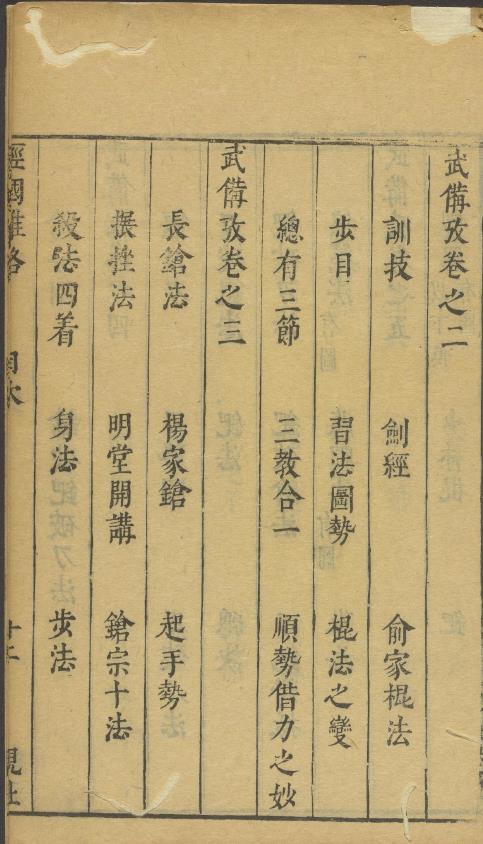 武備攷卷之二
訓技 劍經 俞家棍法
步目 習法圖勢 棍法之變
總有三節 三教合一 順勢借力之妙
武備攷卷之三
長鎗法 楊家鎗 起手勢
㨫拴法 明堂開講 鎗宗十法
殺法四着 身法 步法
經國雄略 目次 觀社